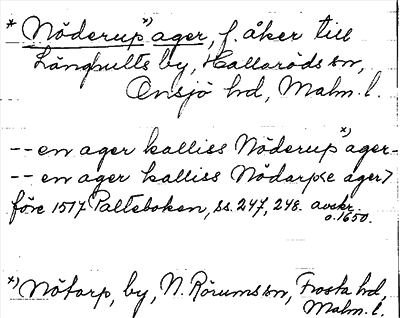 * Nöderup *) ager, f. åker till
Långhults by, Hallaröds sn,
Onsjö hd, Malm. l.
-- en ager kalliss Nöderup *) ager -
-- en ager kalliss Nödarp<e ager>
före 1517 Palteboken, ss. 247, 248. avskr.
o. 1650.
*) Nötarp, by, N. Rörums sn, Frosta hd,
Malm. l.